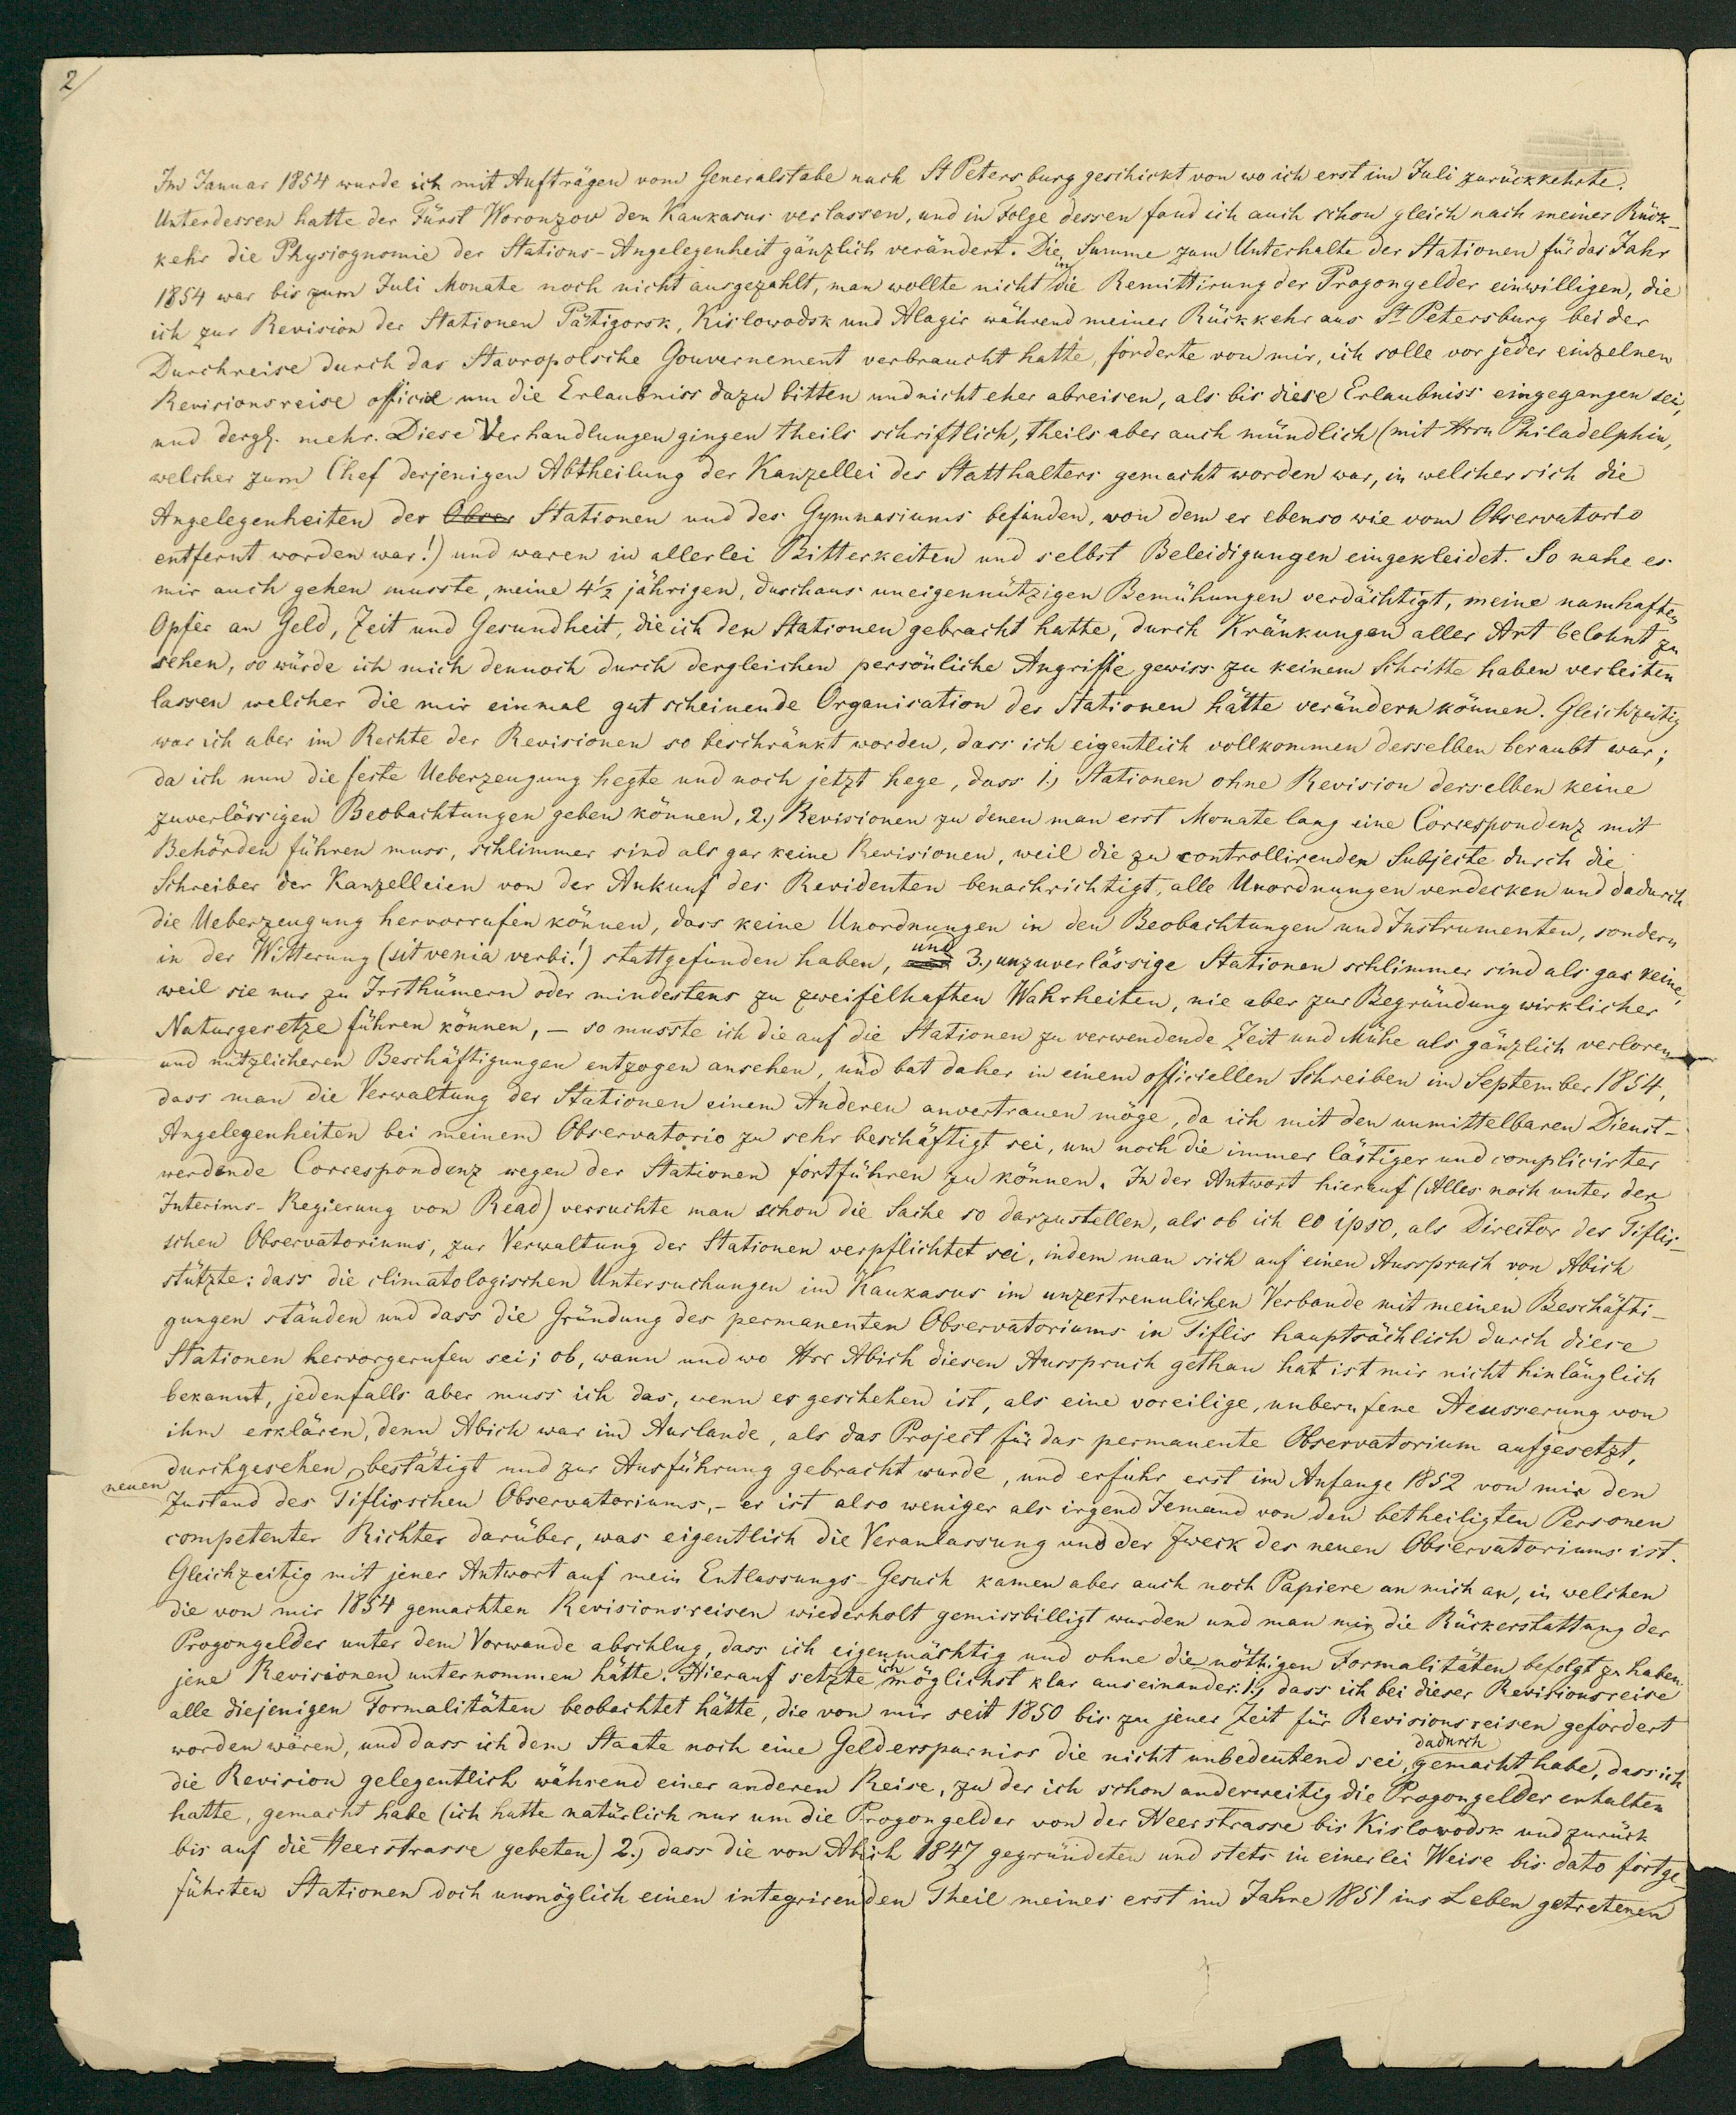 2/
Im Januar 1854 wurde ich mit Aufträgen vom Generalstabe nach St Petersburg geschickt von wo ich erst im Juli zurückkehrte.
Unterdessen hatte der Fürst Woronzow den Kaukasus verlassen, und in Folge dessen fand ich auch schon gleich nach meiner Rück-
kehr die Physiognomie der Stations-Angelegenheit gänzlich verändert. Die Summe zum Unterhalte der Stationen für das Jahr
1854 war bis zum Juli Monate noch nicht ausgezahlt, man wollte nicht in die Remittirung der Progongelder einwilligen, die
ich zur Revision der Stationen Pätigorsk, Kislowodsk und Alagir während meiner Rückkehr aus St Petersburg bei der
Durchreise durch das Stavropolsche Gouvernement verbraucht hatte, forderte von mir, ich solle vor jeder einzelnen
Revisionsreise officiel um die Erlaubniss dazu bitten und nicht eher abreisen, als bis diese Erlaubniss eingegangen sei,
und dergl. mehr. Diese Verhandlungen gingen theils schriftlich, theils aber auch mündlich (mit Hrrn Philadelphin,
welcher zum Chef derjenigen Abtheilung der Kanzellei des Statthalters gemacht worden war, in welcher sich die
Angelegenheiten der Obser Stationen und des Gymnasiums befinden, von dem er ebenso wie vom Observatorio
entfernt worden war!) und waren in allerlei Bitterkeiten und selbst Beleidigungen eingekleidet. So nahe es
mir auch gehen musste, meine 4½ jährigen, durchaus uneigennützigen Bemühungen verdächtigt, meine namhaften
Opfer an Geld, Zeit und Gesundheit, die ich den Stationen gebracht hatte, durch Kränkungen aller Art belohnt zu
sehen, so würde ich mich dennoch durch dergleichen persönliche Angriffe gewiss zu keinem Schritte haben verleiten
lassen welcher die mir einmal gut scheinende Organisation der Stationen hätte verändern können. Gleichzeitig
war ich aber im Rechte der Revisionen so beschränkt worden, dass ich eigentlich vollkommen desselben beraubt war;
da ich nun die feste Ueberzeugung hegte und noch jetzt hege, dass 1.) Stationen ohne Revision derselben keine
zuverlässigen Beobachtungen geben können, 2.) Revisionen zu denen man erst Monate lang eine Correspondenz mit
Behörden führen muss, schlimmer sind als gar keine Revisionen, weil die zu controllirenden Subjecte durch die
Schreiber der Kanzelleien von der Ankunf des Revidenten benachrichtigt, alle Unordnungen verdecken und dadurch
die Ueberzeugung hervorrufen können, dass keine Unordnungen in den Beobachtungen und Instrumenten, sondern
in der Witterung (sit venia verbi!) stattgefunden haben, und 3.) unzuverlässige Stationen schlimmer sind als gar keine,
weil sie nur zu Irrthümern oder mindestens zu zweifelhaften Wahrheiten, nie aber zur Begründung wirklicher
Naturgesetze führen können, – so musste ich die auf die Stationen zu verwendende Zeit und Mühe als gänzlich verloren
und nützlicheren Beschäftigungen entzogen ansehen, und bat daher in einem officiellen Schreiben im September 1854,
dass man die Verwaltung der Stationen einem Anderen anvertrauen möge, da ich mit den unmittelbaren Dienst-
Angelegenheiten bei meinem Observatorio zu sehr beschäftigt sei, um noch die immer lästiger und complicirter
werdende Correspondenz wegen der Stationen fortführen zu können. In der Antwort hierauf (Alles noch unter der
Interims-Regierung von Read) versuchte man schon die Sache so darzustellen, als ob ich eo ipso, als Director des Tiflis-
schen Observatoriums, zur Verwaltung der Stationen verpflichtet sei, indem man sich auf einen Ausspruch von Abich
stützte: dass die climatologischen Untersuchungen im Kaukasus im unzertrennlichen Verbande mit meinen Beschäfti-
gungen ständen und dass die Gründung des permanenten Observatoriums in Tiflis hauptsächlich durch diese
Stationen hervorgerufen sei; ob, wann und wo Hrr Abich diesen Ausspruch gethan hat ist mir nicht hinlänglich
bekannt, jedenfalls aber muss ich das, wenn es geschehen ist, als eine voreilige, unberufene Aeusserung von
ihm erklären, denn Abich war im Auslande, als das Project für das permanente Observatorium aufgesetzt,
durchgesehen, bestätigt und zur Ausführung gebracht wurde, und erfuhr erst im Anfange 1852 von mir den
neuen Zustand des Tiflisschen Observatoriums, – er ist also weniger als irgend Jemand von den betheiligten Personen
competenter Richter darüber, was eigentlich die Veranlassung und der Zweck des neuen Observatoriums ist.
Gleichzeitig mit jener Antwort auf mein Entlassungs-Gesuch kamen aber auch noch Papiere an mich an, in welchen
die von mir 1854 gemachten Revisionsreisen wiederholt gemissbilligt wurden und man mir die Rückerstattung der
Progongelder unter dem Vorwande abschlug, dass ich eigenmächtig und ohne die nöthigen Formalitäten befolgt zu haben,
jene Revisionen unternommen hätte. Hierauf setzte ich möglichst klar auseinander: 1.) dass ich bei dieser Revisionsreise
alle diejenigen Formalitäten beobachtet hätte, die von mir seit 1850 bis zu jener Zeit für Revisionsreisen gefordert
worden wären, und dass ich dem Staate noch eine Geldersparniss die nicht unbedeutend sei, dadurch gemacht habe, dass ich
die Revision gelegentlich während einer anderen Reise, zu der ich schon anderweitig die Progongelder erhalten
hatte, gemacht habe (ich hatte natürlich nur um die Progongelder von der Heerstrasse bis Kislowodsk und zurück
bis auf die Heerstrasse gebeten) 2.) dass die von Abich 1847 gegründeten und stets in einerlei Weise bis dato fortge-
führten Stationen doch unmöglich einen integrirenden Theil meines erst im Jahre 1851 ins Leben getretenen